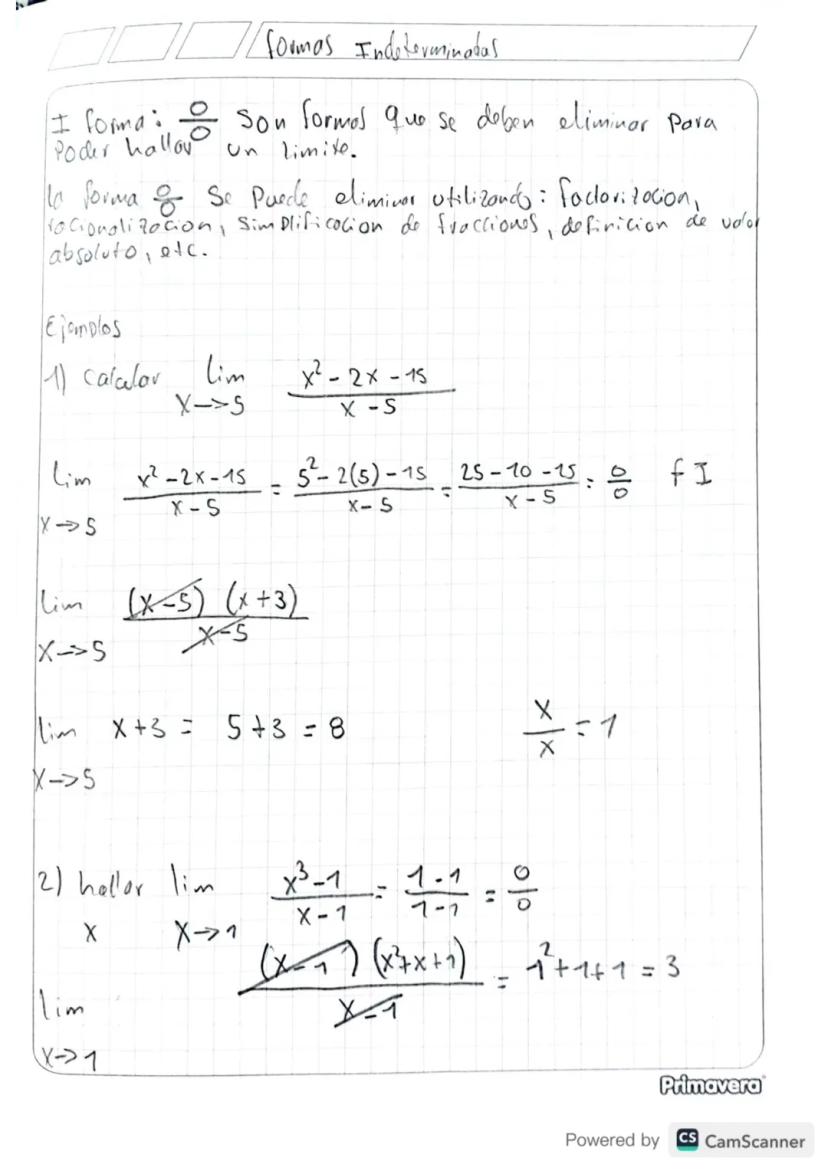 formas Indeterminadas
I forma: 0/0 Son formas que se deben eliminar para
Poder hallar un limite.
la forma 0/0 Se Puede eliminar utilizando: factorizacion,
racionalizacion, simplificacion de fracciones, definicion de valor
absoluto, etc.
Ejemplos
1) calcular lim x->5 (x² - 2x - 15)/(x - 5)
lim x->5 (x² - 2x - 15)/(x - 5) = (5² - 2(5) - 15)/(x - 5) = (25 - 10 - 15)/(x - 5) = 0/0 f I
lim x->5 (x-5)(x+3)/(x-5)
lim x->5 x+3 = 5+3 = 8
x/x = 1
2) hallar lim x->1 (x³-1)/(x-1) = (1-1)/(1-1) = 0/0
x
lim x->1 (x-1)(x²+x+1)/(x-1) = 1²+1+1 = 3
Primavera
Powered by CS CamScanner